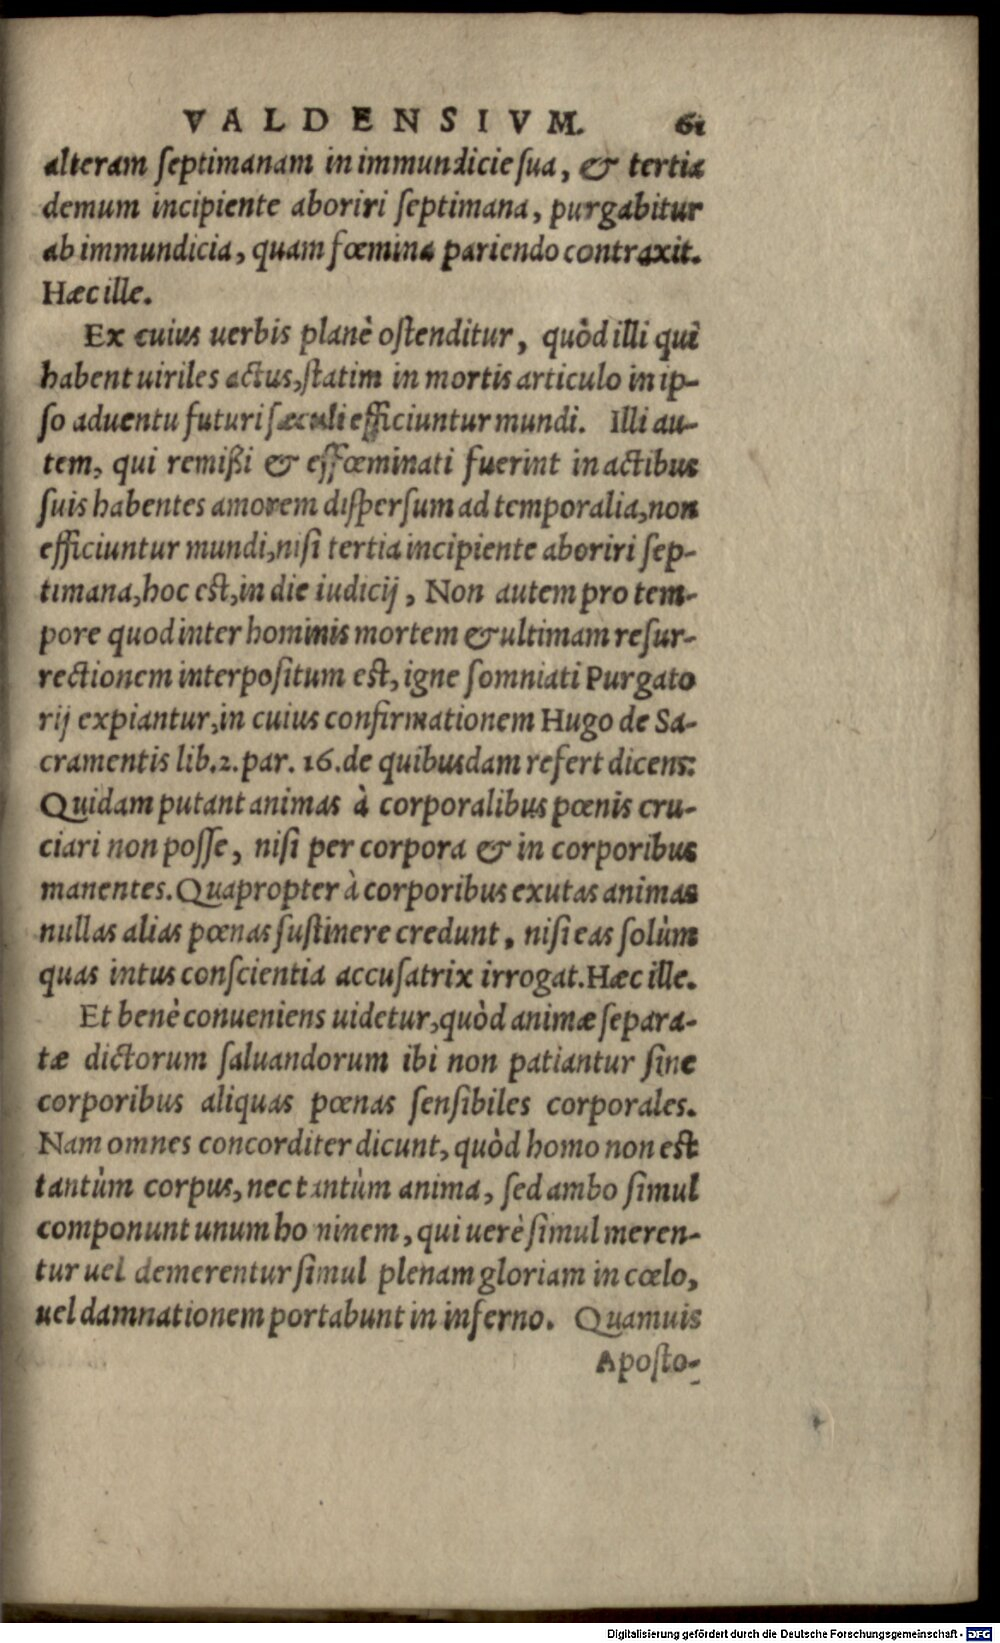 VALDENSIVM. 61
alteram septimanam in immundicie sua, & tertia
demum incipiente aboriri septimana, purgabitur
ab immundicia, quam fœmina pariendo contraxit.
Hæc ille.
Ex cuius uerbis planè ostenditur, quòd illi qui
habent uiriles actus, statim in mortis articulo in ip-
so aduentu futuri sæculi efficiuntur mundi. Illi au-
tem, qui remißi & effœminati fuerint in actibus
suis habentes amorem dispersum ad temporalia, non
efficiuntur mundi, nisi tertia incipiente aboriri sep-
timana, hoc est, in die iudicij, Non autem pro tem-
pore quod inter hominis mortem & ultimam resur-
rectionem interpositum est, igne somniati Purgato
rij expiantur, in cuius confirmationem Hugo de Sa-
cramentis lib. 2. par. 16. de quibusdam refert dicens:
Quidam putant animas à corporalibus pœnis cru-
ciari non posse, nisi per corpora & in corporibus
manentes. Quapropter à corporibus exutas animas
nullas alias pœnas sustinere credunt, nisi eas solùm
quas intus conscientia accusatrix irrogat. Hæc ille.
Et benè conueniens uidetur, quòd animæ separa-
tæ dictorum saluandorum ibi non patiantur sine
corporibus aliquas pœnas sensibiles corporales.
Nam omnes concorditer dicunt, quòd homo non est
tantùm corpus, nec tantùm anima, sed ambo simul
componunt unum hominem, qui uerè simul meren-
tur uel demerentur simul plenam gloriam in cœlo,
uel damnationem portabunt in inferno. Quamuis
Aposto-
Digitalisierung gefördert durch die Deutsche Forschungsgemeinschaft - DFG